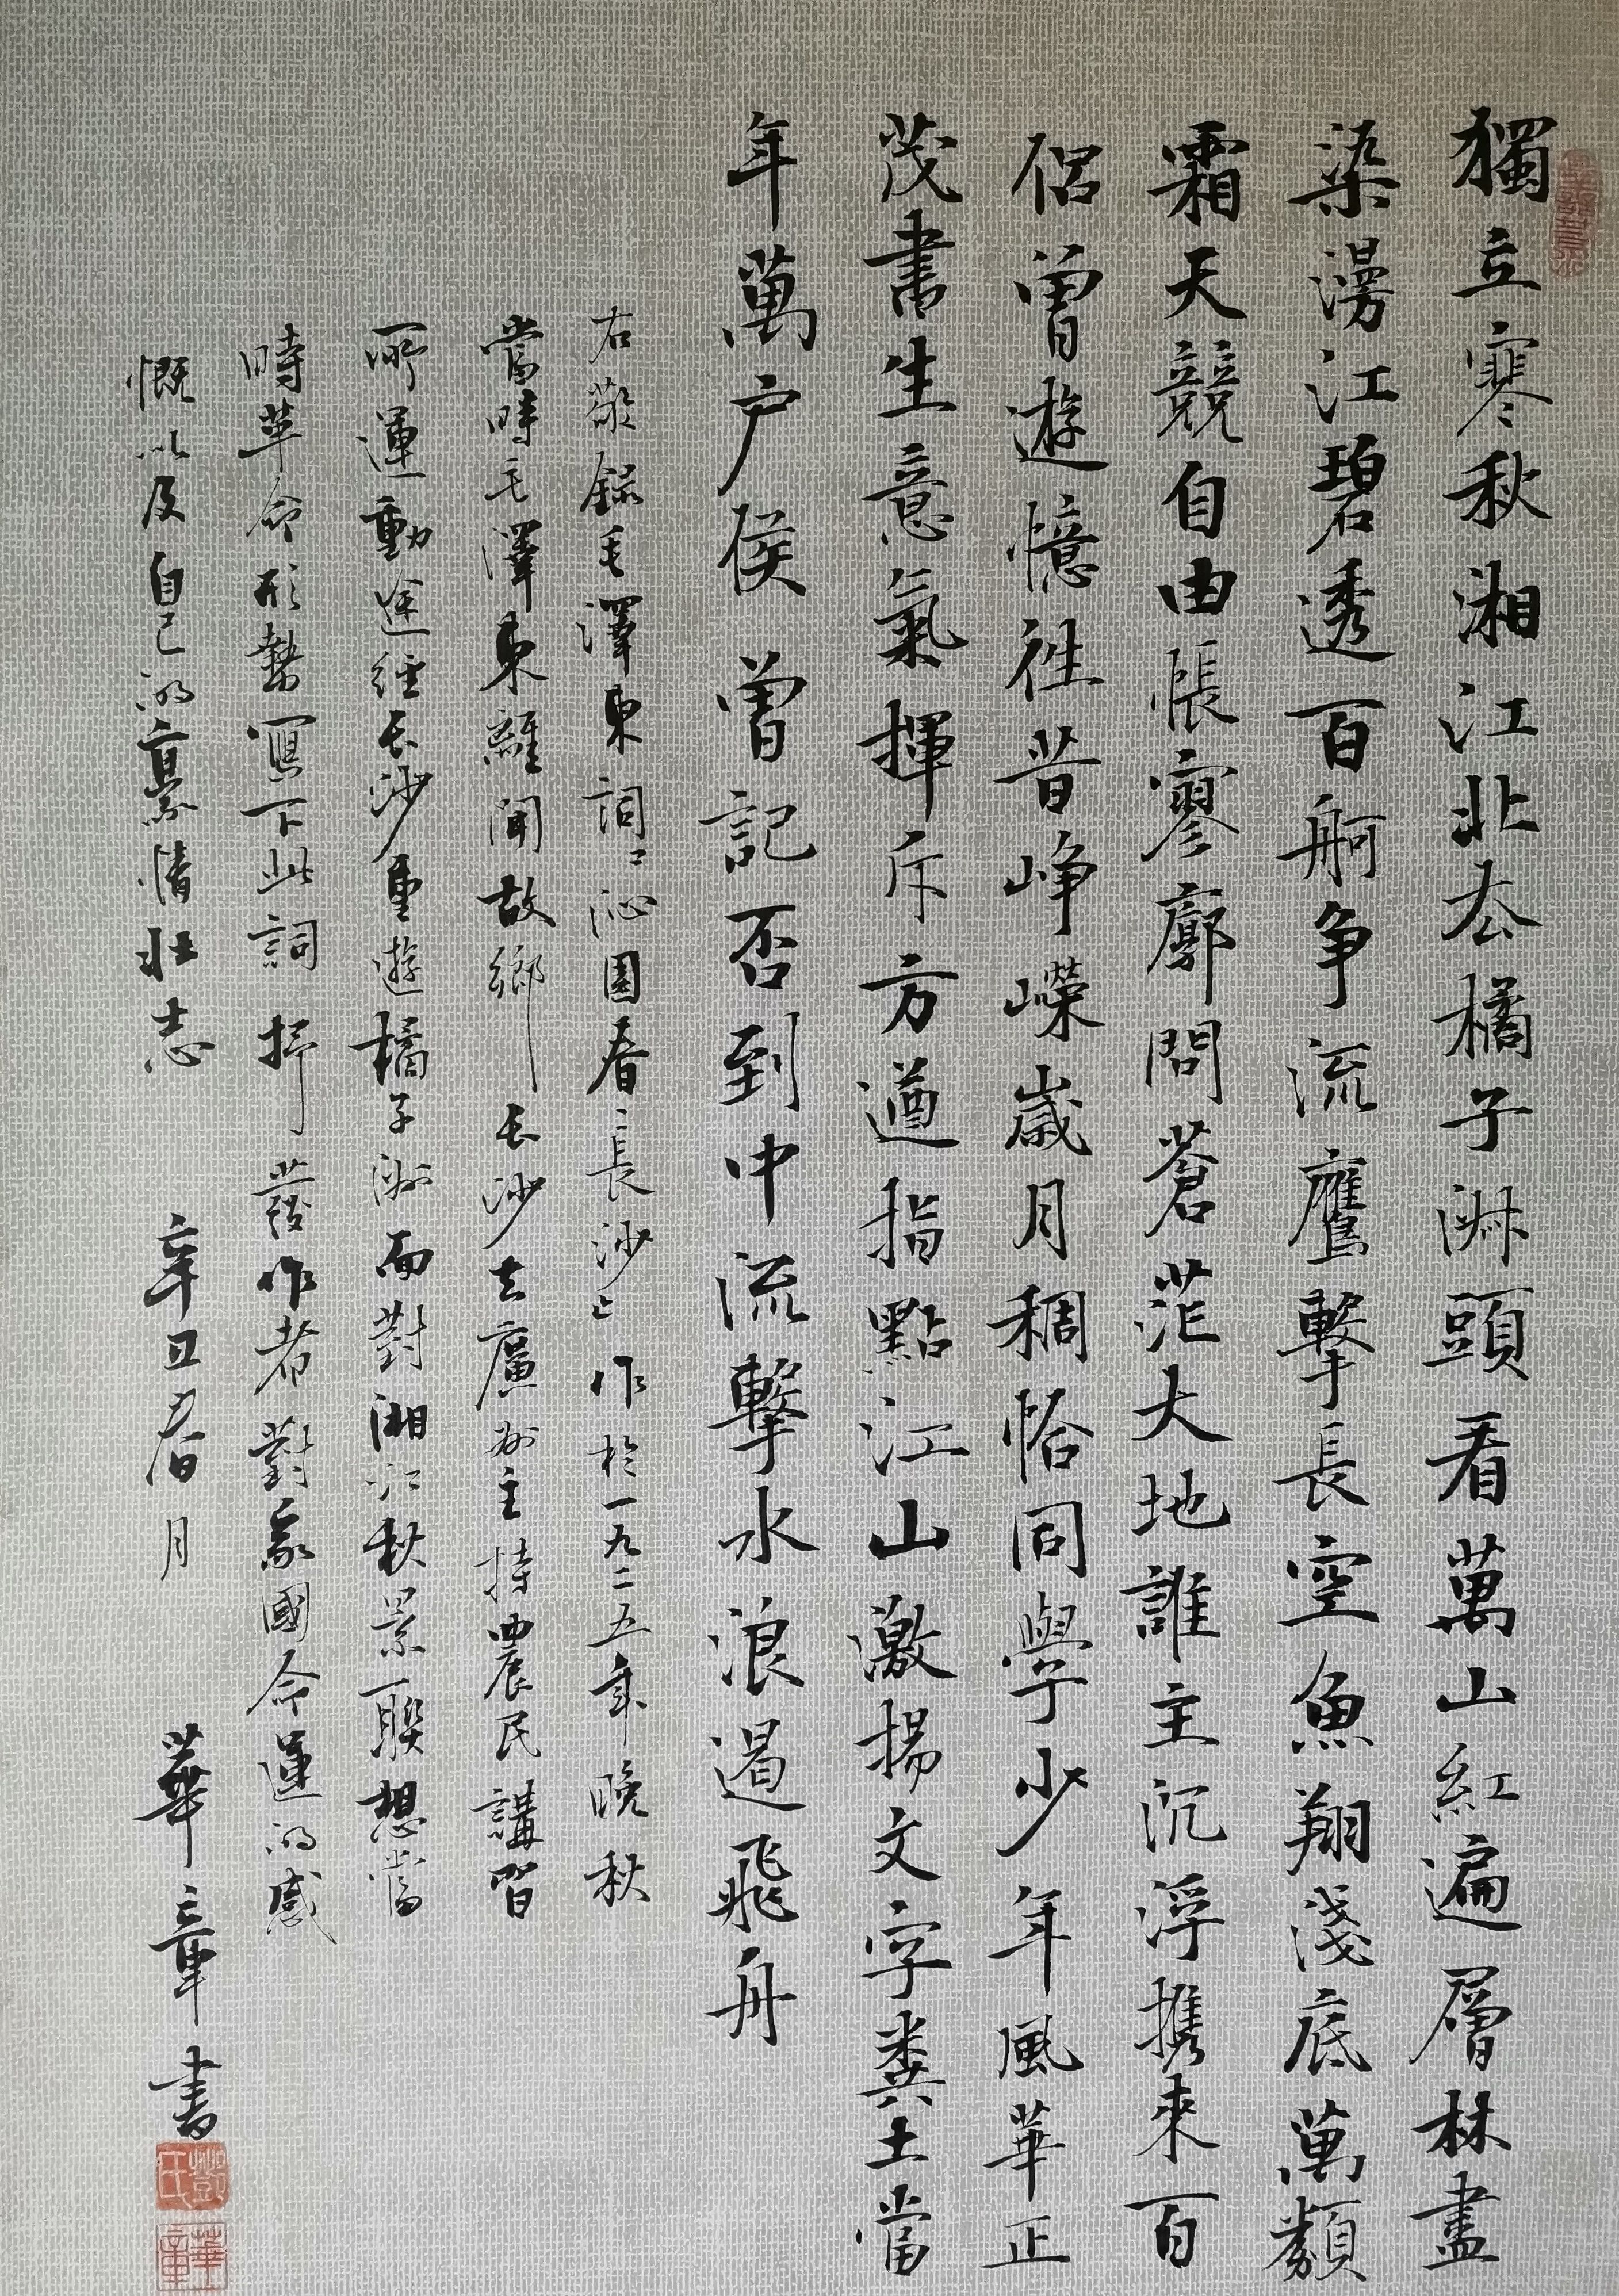 獨立寒秋湘江北去橘子洲頭看萬山紅遍層林盡
染漫江碧透百舸争流鷹擊長空魚翔淺底萬類
霜天競自由悵寥廓問蒼茫大地誰主沉浮攜來百
侶曾遊憶往昔崢嶸歲月稠恰同學少年風華正
茂書生意氣揮斥方遒指點江山激揚文字糞土當
年萬户侯曾記否到中流擊水浪遏飛舟
右敬錄毛澤東詞沁園春長沙作於一九二五年晚秋
當時毛澤東離開故鄉長沙去廣州主持農民講習
所運動途經長沙重遊橘子洲面對湘江秋景一聯想當
時革命形勢寫下此詞抒發作者對家國命運的感
慨以及自己的豪情壯志
辛丑春月
華章書
鄧氏
華章